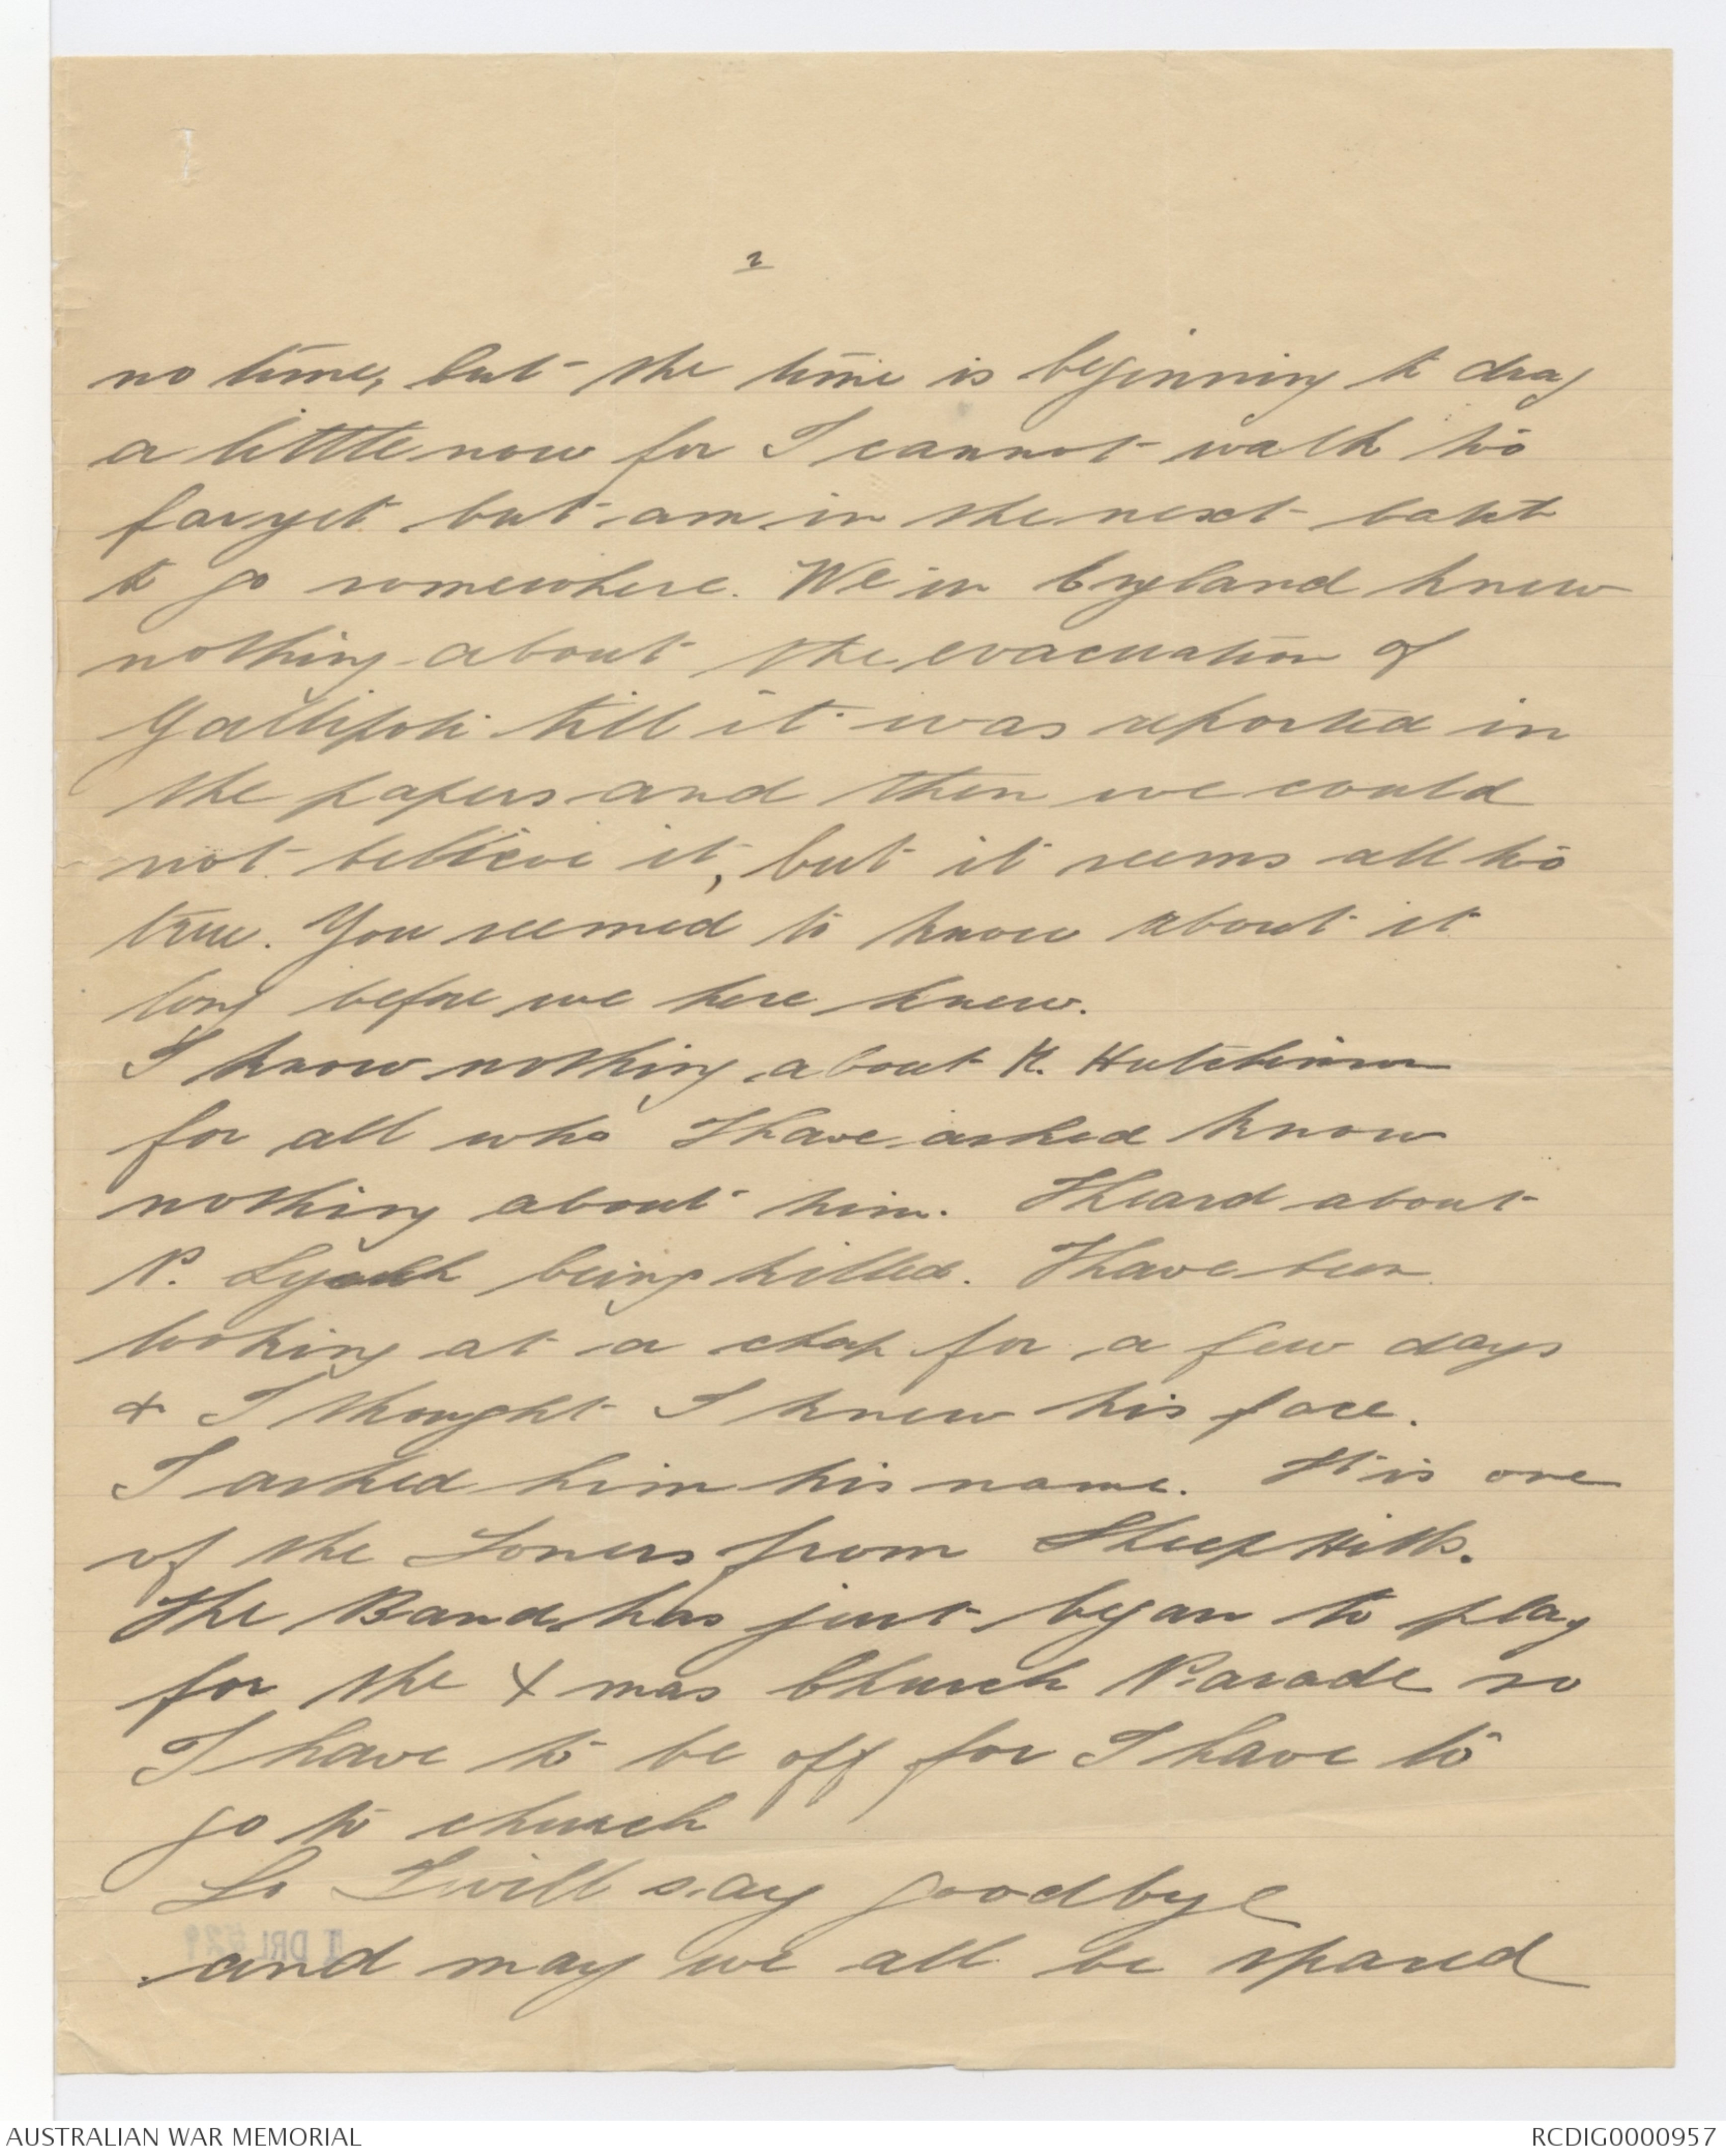 2
no time, but the time is beginning to drag
a little now for I cannot walk too
far yet but am in the next
to go somewhere. We in England knew
nothing about the evacuation of
Gallipoli till it was reported in
the papers and then we could
not believe it, but it seems all too
true. You seemed to know about it
long before we here knew.
I know nothing about H. Hutchinson
for all who I have asked know
nothing about him. I heard about
P. being killed. I have been
looking at a chap for a few days
& I thought I knew his face.
I asked him his name. It is one
of the from Sheep Hills.
The Band has just began to play
for the Xmas Church Parade so
I have to be off for I have to
go to church
So I will say goodbye
and may we all be spared
AUSTRALIAN WAR MEMORIAL
RCDIG0000957